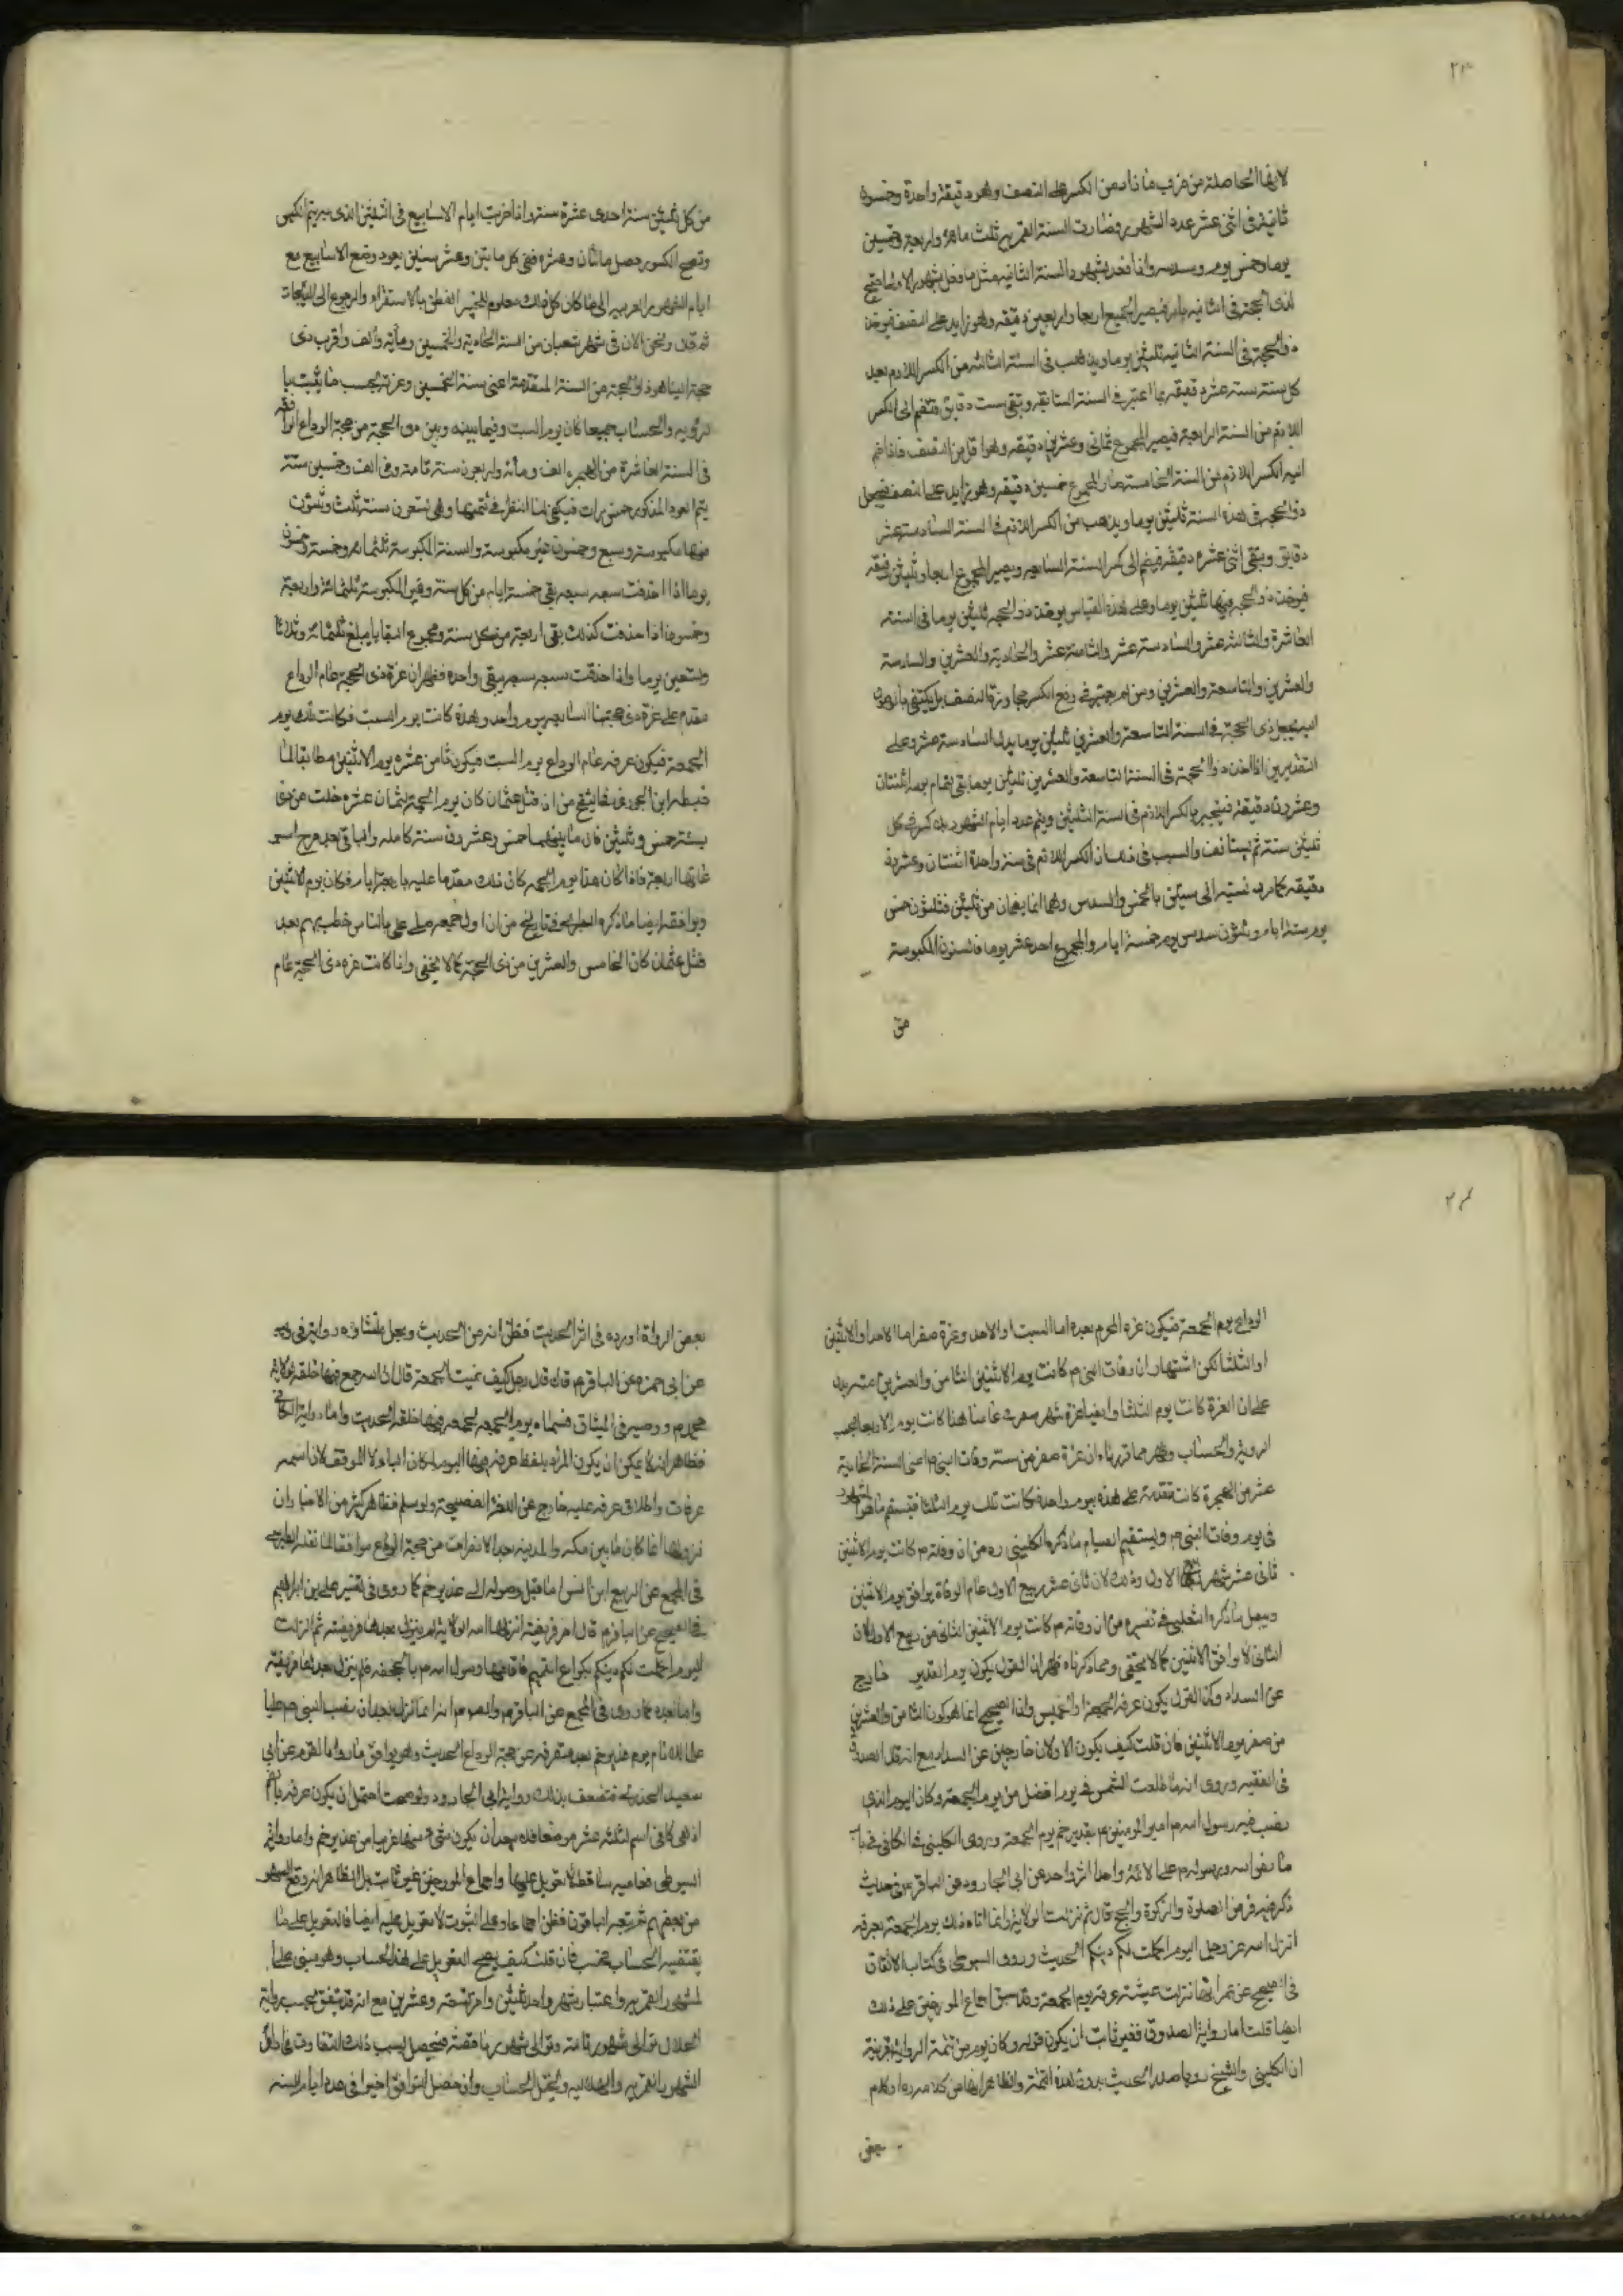 ٢٣
لارتفاع الحاصلة من ضرب ما زاد من الكسر على النصف وهو دقيقة واحدة وخمسون
ثانية في اثنى عشر عدد الشهور وصارت السنة القمرية ثلث مائة واربعة وخمسين
يوما وخمس يوم وسدسه واذا فعل بشهور السنة الثانية مثل ما فعل بشهور الاولى
ذى الحجة في الثانية يصير الجميع اربعا واربعين دقيقة وهو زايد على النصف فيؤخذ
ذو الحجة في السنة الثانية ثلثين يوما ويذهب في السنة الثالثة من الكسر اللازم بعد
كل سنة ستة عشر دقيقة بما اعتبر في السنة السابقة وبقى ست دقايق فتضم الى الكسر
اللازم من السنة الرابعة فيصير المجموع ثمانى وعشرين دقيقة وهو اقل من النصف فاذا ضم
اليه الكسر اللازم من السنة الخامسة صار المجموع خمسين دقيقة وهو زايد على النصف فيجعل
ذو الحجة في هذه السنة ثلثين يوما ويذهب من الكسر اللازم في السنة السادسة عشر
دقايق وبقى اثنى عشرة دقيقة فيضم الى كسر السنة السابعة ويصير المجموع اربعا وثلثين دقيقة
فيؤخذ ذو الحجة فيها ثلثين يوما وعلى هذا القياس يؤخذ ذو الحجة ثلثين يوما في السنة
العاشرة والثالثة عشر والسادسة عشر والثامنة عشر والحادية والعشرين والسادسة
والعشرين والتاسعة والعشرين ومن لم يعتبر في رفع الكسر مجاوزة النصف بل يكتفى بالوصول
اليه يجعل ذى الحجة في السنة التاسعة والعشرين ثلثين يوما بدل السادسة عشر وعلى
التقديرين اذا اخذ ذو الحجة في السنة التاسعة والعشرين ثلثين يوما بقى تمام يوم اثنتان
وعشرون دقيقة فينجبر بالكسر اللازم في السنة الثلثين ويتم عدد ايام الشهور بلا كسر في كل
ثلثين سنة ثم يستانف والسبب في ذلك ان الكسر اللازم في سنة واحدة اثنتان وعشرون
دقيقة كما مر نسبتها الى ستين بالخمس والسدس وهما انما يقعان من ثلثين فثلثون خمس
يوم ستة ايام وثلثون سدس يوم خمسة ايام والمجموع احد عشر يوما فالسنون المكبوسة
من
من كل ثلثين سنة احدى عشرة سنة واذا ضربت ايام الاسابيع في الثلثين الذى به يتم الكبس
وتصح الكسور حصل مائتان وعشرة ففى كل مائتين وعشر سنين يعود وضع الاسابيع مع
ايام الشهور العربية الى ما كان كل ذلك معلوم للخبير الفطن بالاستقراء والرجوع الى الزيجات
ثم نقول ونحن الان في شهر شعبان من السنة الحادية والخمسين ومائة والف واقرب ذى
حجة الينا هو ذو الحجة من السنة المتقدمة اعنى سنة الخمسين وغرته بحسب ما يثبت با
لرؤيه والحساب جميعا كان يوم السبت وفيما بينه وبين ذى الحجة من حجة الوداع الواقعة
في السنة العاشرة من الهجرة الف ومائة واربعون سنة تامة وفى الف وخمسين سنة
يتم العود المذكور خمس مرات فيكفى لنا النظر في تتمتها وهى تسعون سنة ثلث وثلثون
منها مكبوسة وسبع وخمسون غير مكبوسة والسنة المكبوسة ثلثمائة وخمسة وخمسون
يوما اذا حذفت سبعه سبعه بقى خمسة ايام من كل سنة وغير المكبوسة ثلثمائة واربعة
وخمسون اذا حذفت كذلك بقى اربعة من كل سنة ومجموع البقايا يبلغ ثلثمائة وثلاثا
وتسعين يوما واذا حذفت سبعه سبعه يبقى واحد فظهر ان غرة ذى الحجة عام الوداع
مقدم على غرة ذى حجتنا السابعة بيوم واحد وهذه كانت يوم السبت فكانت تلك يوم
الجمعة فيكون عرفة عام الوداع يوم السبت فيكون ثامن عشره يوم الاثنين مطابقا لما
ضبطه ابن الجوزى من ان قتل عثمان كان يوم الجمعة لثمان عشرة خلت من ذى
سنة خمس وثلثين فان ما بينهما خمس وعشرون سنة كاملة والباقى بعد طرح
غايتها اربعة فاذا كان هذا يوم الجمعة كان ذلك مقدما عليه باربعة ايام فكان يوم الاثنين
ويوافقه ايضا ما ذكره الطبرى في تاريخه من ان اول جمعة صلى على بالناس خطب بهم بعد
قتل عثمان كان الخامس والعشرين من ذى الحجة كما لا يخفى واذا كانت غرة ذى الحجة عام
٢٤
الوداع يوم الجمعة فيكون غرة المحرم بعده اما السبت او الاحد وغرة صفر اما الاحد او الاثنين
او الثلثا لكن اشتهار ان وفات النبى ص كانت يوم الاثنين الثامن والعشرين منه يدل
على ان الغرة كانت يوم الثلثا وايضا غرة شهر صفر في عامنا هذا كانت يوم الاربعا بحسب
الرؤية والحساب وظهر مما قررناه ان غرة صفر من سنة وفات النبى ص اعنى السنة الحادية
عشر من الهجرة كانت متقدمة على هذه بيوم واحد فكانت تلك يوم الثلثا فيستقيم ما هو المشهور
في يوم وفات النبى ص ويستقيم ايضا ما ذكره الكلينى ره من ان وفاته ص كانت يوم الاثنين
ثانى عشر شهر ربيع الاول وذلك لان ثانى عشر ربيع الاول عام الوفاة يوافق يوم الاثنين
ويبطل ما ذكره الثعلبى في تفسيره من ان وفاته ص كانت يوم الاثنين الثانى من ربيع الاول لان
الثانى لا يوافق الاثنين كما لا يخفى ومما ذكرناه ظهر ان القول بكون يوم الغدير خارج
عن السداد وكذا القول بكون عرفة الجمعة او الخميس واذا الصحيح انما هو كون الثامن والعشرين
من صفر يوم الاثنين فان قلت كيف يكون الاولان خارجين عن السداد مع انه نقل الصدوق
في الفقيه وروى انه ما طلعت الشمس في يوم افضل من يوم الجمعة وكان اليوم الذى
نصب فيه رسول الله ص امير المومنين ع بغدير خم يوم الجمعة وروى الكلينى في الكافى في باب
ما نص الله ورسوله ص على الائمة واحدا اثر واحد عن ابى الجارود عن الباقر ع في حديث
ذكر فيه فرض الصلوة والزكوة والحج قال ثم نزلت الولاية وانما اتاه ذلك يوم الجمعة بعرفة
انزل الله عز وجل اليوم اكملت لكم دينكم الحديث وروى السيوطى في كتاب الاتقان
في الصحيح عن عمر انها نزلت عشية عرفة يوم الجمعة وقد سبق اجماع المورخين على ذلك
ايضا قلت اما رواية الصدوق فغير ثابت ان يكون قوله وكان يوم من تتمة الرواية بقرينة
ان الكلينى والشيخ رويا صدر الحديث بدون هذه التتمة والظاهر انها من كلامه ره او كلام
بعض
بعض الرواة اورده في اثر الحديث فظن انه من الحديث ولعل منشاؤه روايته في
عن ابى حمزه عن الباقر ع قال قال رجل كيف سميت الجمعة قال ان الله جمع فيها خلقه لولاية
محمد ص ووصيه في الميثاق فسماه يوم الجمعة لجمعه فيها خلقه الحديث واما رواية الكافى
فظاهر انه لا يمكن ان يكون المراد بلفظ عرفة فيها اليوم لمكان الباء ولا الموقف لان اسمه
عرفات واطلاق عرفة عليه خارج عن اللغة الفصيحة ولو سلم فظاهر كثير من الاخبار ان
نزولها انما كان ما بين مكه والمدينه بعد الانصراف من حجة الوداع موافقا لما نقله الطبرسى
في المجمع عن الربيع ابن انس اما قبل وصوله الى غدير خم كما روى في تفسير على بن ابراهيم
في الصحيح عن الباقر ع قال اخر فريضة انزلها الله الولاية ثم لم ينزل بعدها فريضة ثم انزلت
اليوم اكملت لكم دينكم بكراع الغميم فاقامها رسول الله ص بالجحفة فلم ينزل بعدها فريضة
واما بعده كما روى في المجمع عن الباقر ع والصادق ع انه انما انزلت بعد ان نصب النبى ص عليا
علما للانام يوم غدير خم بعد منصرفه عن حجة الوداع الحديث وهو يوافق ما رواه القوم عن ابى
سعيد الخدرى فتضعف بذلك رواية ابى الجارود ولو صحت احتمل ان يكون عرفة
اذ هى كافى اسم لثلثة عشر موضعا فلا يبعد ان يكون شىء منها قريبا من غدير خم واما رواية
السيوطى فعامية ساقطة لا تعويل عليها واجماع المورخين غير ثابت بل الظاهر انه وقع السهو
من بعضهم ثم تبعه الباقون فظن اجماعا وعلى الثبوت لا تعويل عليه ايضا فالتعويل على ما
يقتضيه الحساب فحسب فان قلت كيف يصح التعويل على هذا الحساب وهو مبنى على
الشهور القمريه واعتبار شهر واحد ثلثين واخر تسعة وعشرين مع انه قد يتفق بحسب رؤية
الهلال توالى شهور تامة وتوالى شهور ناقصة فيحصل بسبب ذلك التفاوت في اوائل
الشهور القمريه والهلاليه ويختل الحساب وان حصل التوافق اخيرا في عدد ايام السنه